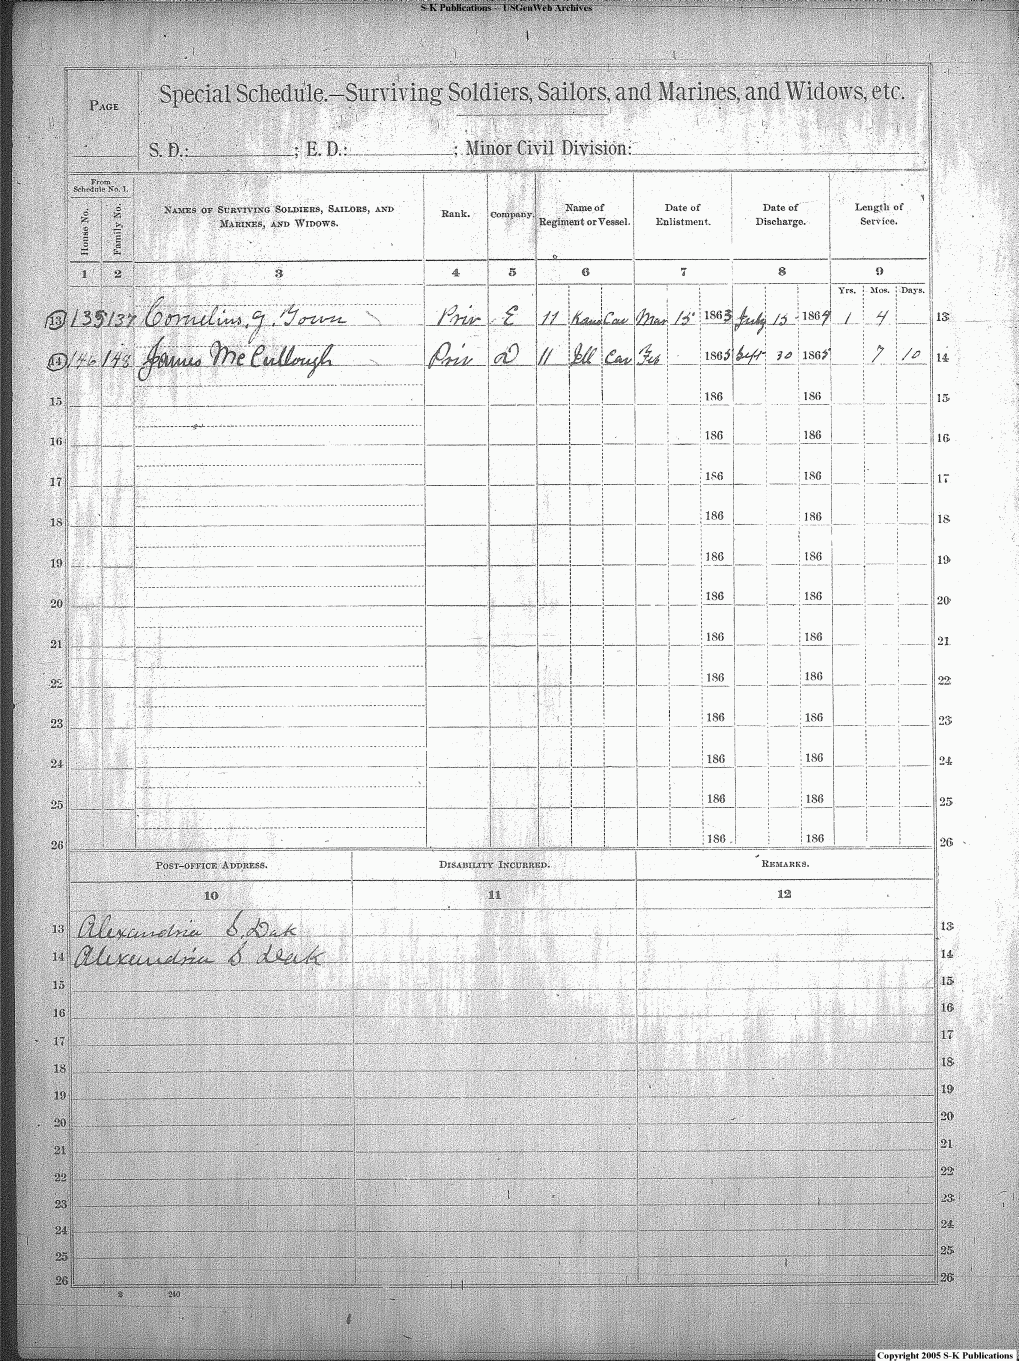 S-K Publications - USGenWeb Archives
PAGE
Special Schedule.—Surviving Soldiers, Sailors, and Marines, and Widows, etc.
S. D.: ; E. D.: ; Minor Civil Division:
From Schedule No. 1.
House No. Family No. NAMES OF SURVIVING SOLDIERS, SAILORS, AND MARINES, AND WIDOWS. Rank. Company. Name of Regiment or Vessel. Date of Enlistment. Date of Discharge. Length of Service.
1 2 3 4 5 6 7 8 9
Yrs. Mos. Days.
13 135 137 Cornelius, G. Town Priv E 11 Kans Cav Mar 15 1863 July 15 1864 1 4 13
14 146 148 James McCullough Priv D 11 Ill Cav Feb 1865 Sept 30 1865 7 10 14
15 186 186 15
16 186 186 16
17 186 186 17
18 186 186 18
19 186 186 19
20 186 186 20
21 186 186 21
22 186 186 22
23 186 186 23
24 186 186 24
25 186 186 25
26 186 186 26
POST-OFFICE ADDRESS. DISABILITY INCURRED. REMARKS.
10 11 12
13 Alexandria S. Dak 13
14 Alexandria S Dak 14
15 15
16 16
17 17
18 18
19 19
20 20
21 21
22 22
23 23
24 24
25 25
26 26
240
Copyright 2005 S-K Publications